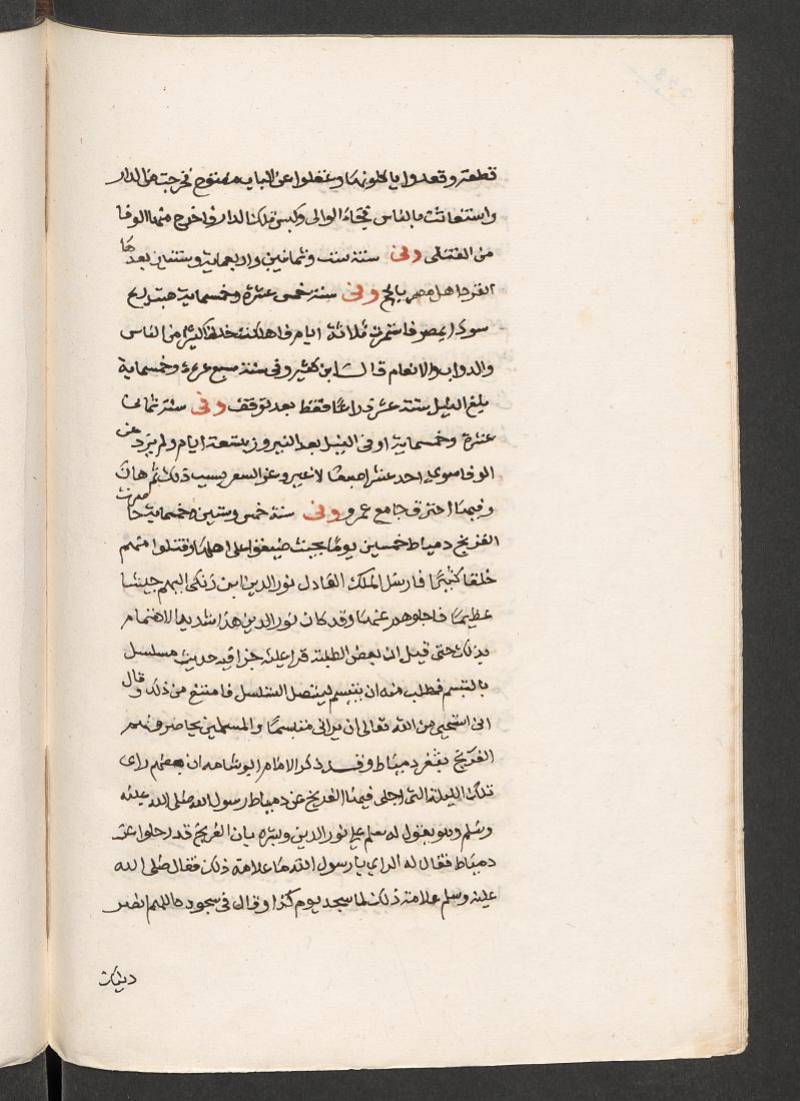 قطعته وقعدوا ياكلونها وغفلوا عن الباب مفتوح فخرجت من الدار
واستغاثت بالناس فجاء الوالى وكبس تلك الدار فاخرج منها الوفا
من القتلى وفى سنة ست وثمانين واربعماية وسنتين بعدها
انفرد اهل مصر بالحج وفى سنة خمس عشرة وخمسماية هبت ريح
سودا بمصر فاستمرت ثلاثة ايام فاهلكت خلقا كثيرا من الناس
والدواب والانعام قال ابن كثير وفى سنة سبع عشرة وخمسماية
بلغ النيل ستة عشر ذراعا فقط بعد توقف وفى سنة ثمانى
عشرة وخمسماية اوفى النيل بعد النيروز بتسعة ايام ولم يزد عن
الوفا سوى احد عشر اصبعا لا غير وعز السعر بسبب ذلك ثم هان
وفيها احترق جامع عمرو وفى سنة خمس وستين وخمسماية حاصرت
الفرنج دمياط خمسين يوما بحيث ضيقوا على اهلها وقتلوا منهم
خلقا كثيرا فارسل الملك العادل نور الدين ابن زنكى اليهم جيشا
عظيما فاجلوهم عنها وقد كان نور الدين هذا شديد الاهتمام
بذلك حتى قيل ان بعض الطلبة قرا عليه جزا فيه حديث مسلسل
بالتبسم فطلب منه ان يتبسم ليتصل التسلسل فامتنع من ذلك وقال
انى استحيى من الله تعالى ان يرانى متبسما والمسلمين يحاصرونهم
الفرنج بثغر دمياط وقد ذكر الامام ابو شامه ان بعضهم راى
تلك الليلة التى اجلى فيها الفرنج عن دمياط رسول الله صلى الله عليه
وسلم وهو يقول له سلم على نور الدين وبشره بان الفرنج قد رحلوا عن
دمياط فقال له الراى يا رسول الله ما علامة ذلك فقال صلى الله
عليه وسلم علامة ذلك لما سجد يوم كذا وقال فى سجوده اللهم انصر
دينك